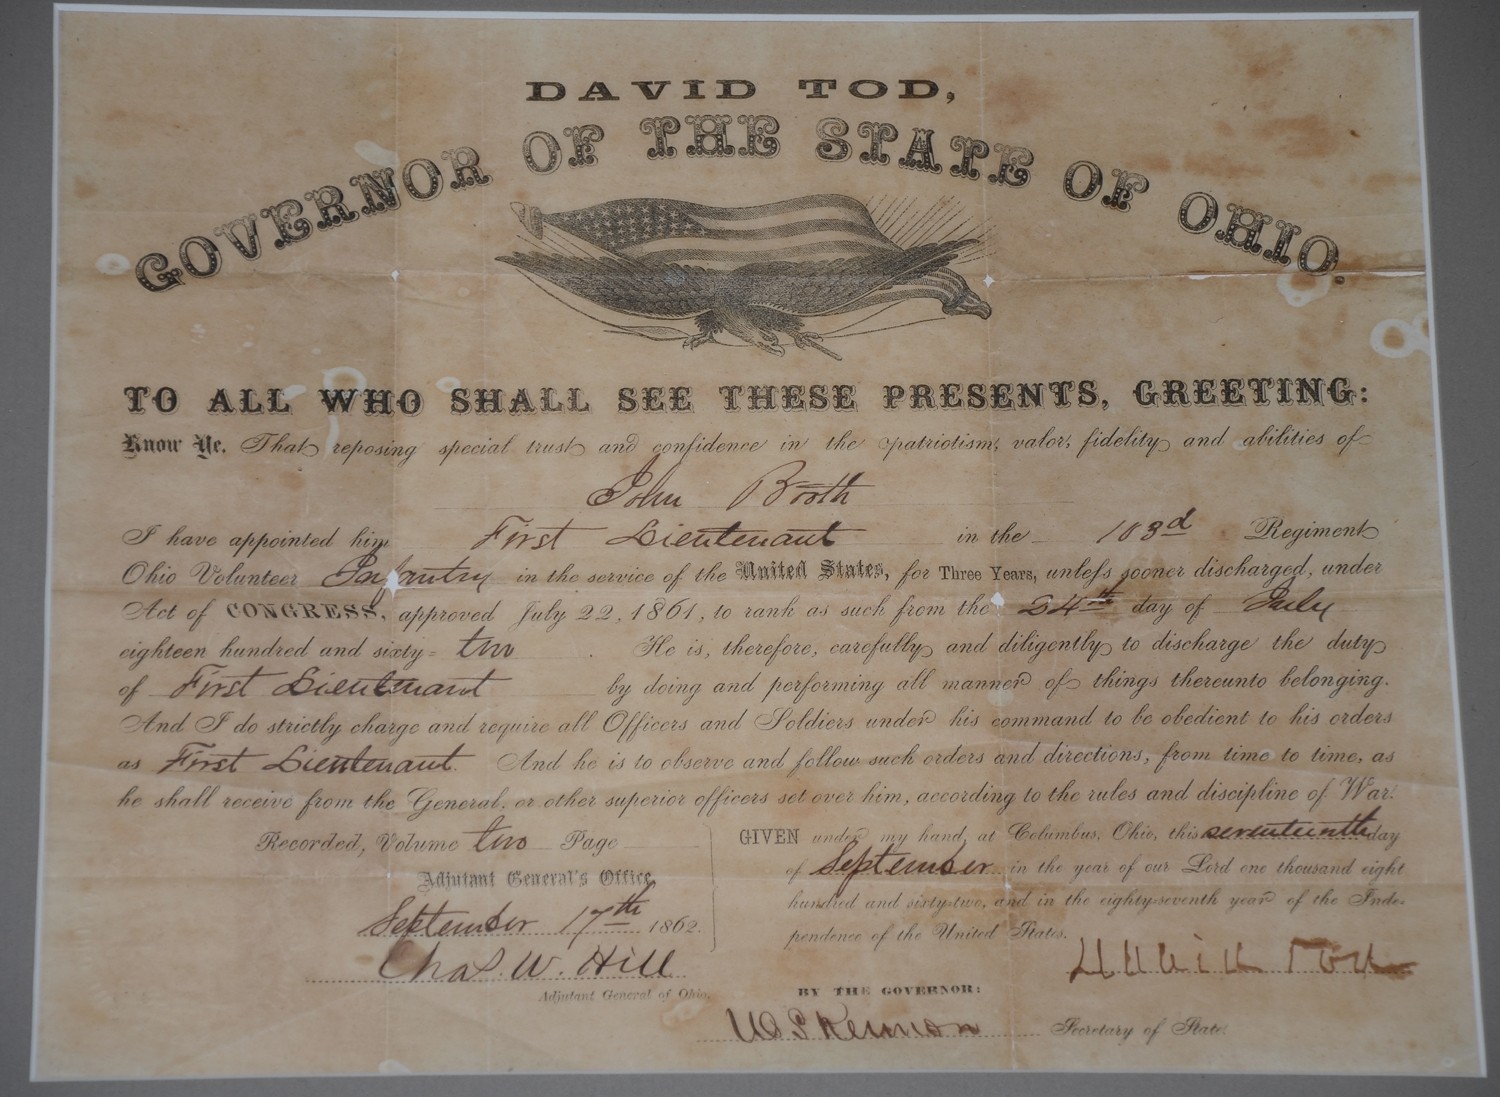 DAVID TOD,
GOVERNOR OF THE STATE OF OHIO.
TO ALL WHO SHALL SEE THESE PRESENTS, GREETING:
Know Ye, That reposing special trust and confidence in the patriotism, valor, fidelity and abilities of
John Booth
I have appointed him First Lieutenant in the 103d Regiment
Ohio Volunteer Infantry in the service of the United States, for Three Years, unless sooner discharged, under
Act of CONGRESS, approved July 22, 1861, to rank as such from the 24th day of July
eighteen hundred and sixty-two. He is, therefore, carefully and diligently to discharge the duty
of First Lieutenant by doing and performing all manner of things thereunto belonging.
And I do strictly charge and require all Officers and Soldiers under his command to be obedient to his orders
as First Lieutenant. And he is to observe and follow such orders and directions, from time to time, as
he shall receive from the General, or other superior officers set over him, according to the rules and discipline of War.
Recorded, Volume two Page
Adjutant General's Office,
September 17th 1862.
Chas. W. Hill
Adjutant General of Ohio.
GIVEN under my hand, at Columbus, Ohio, this seventeenth day
of September in the year of our Lord one thousand eight
hundred and sixty-two, and in the eighty-seventh year of the Inde-
pendence of the United States.
David Tod
BY THE GOVERNOR:
W S Kennon Secretary of State.